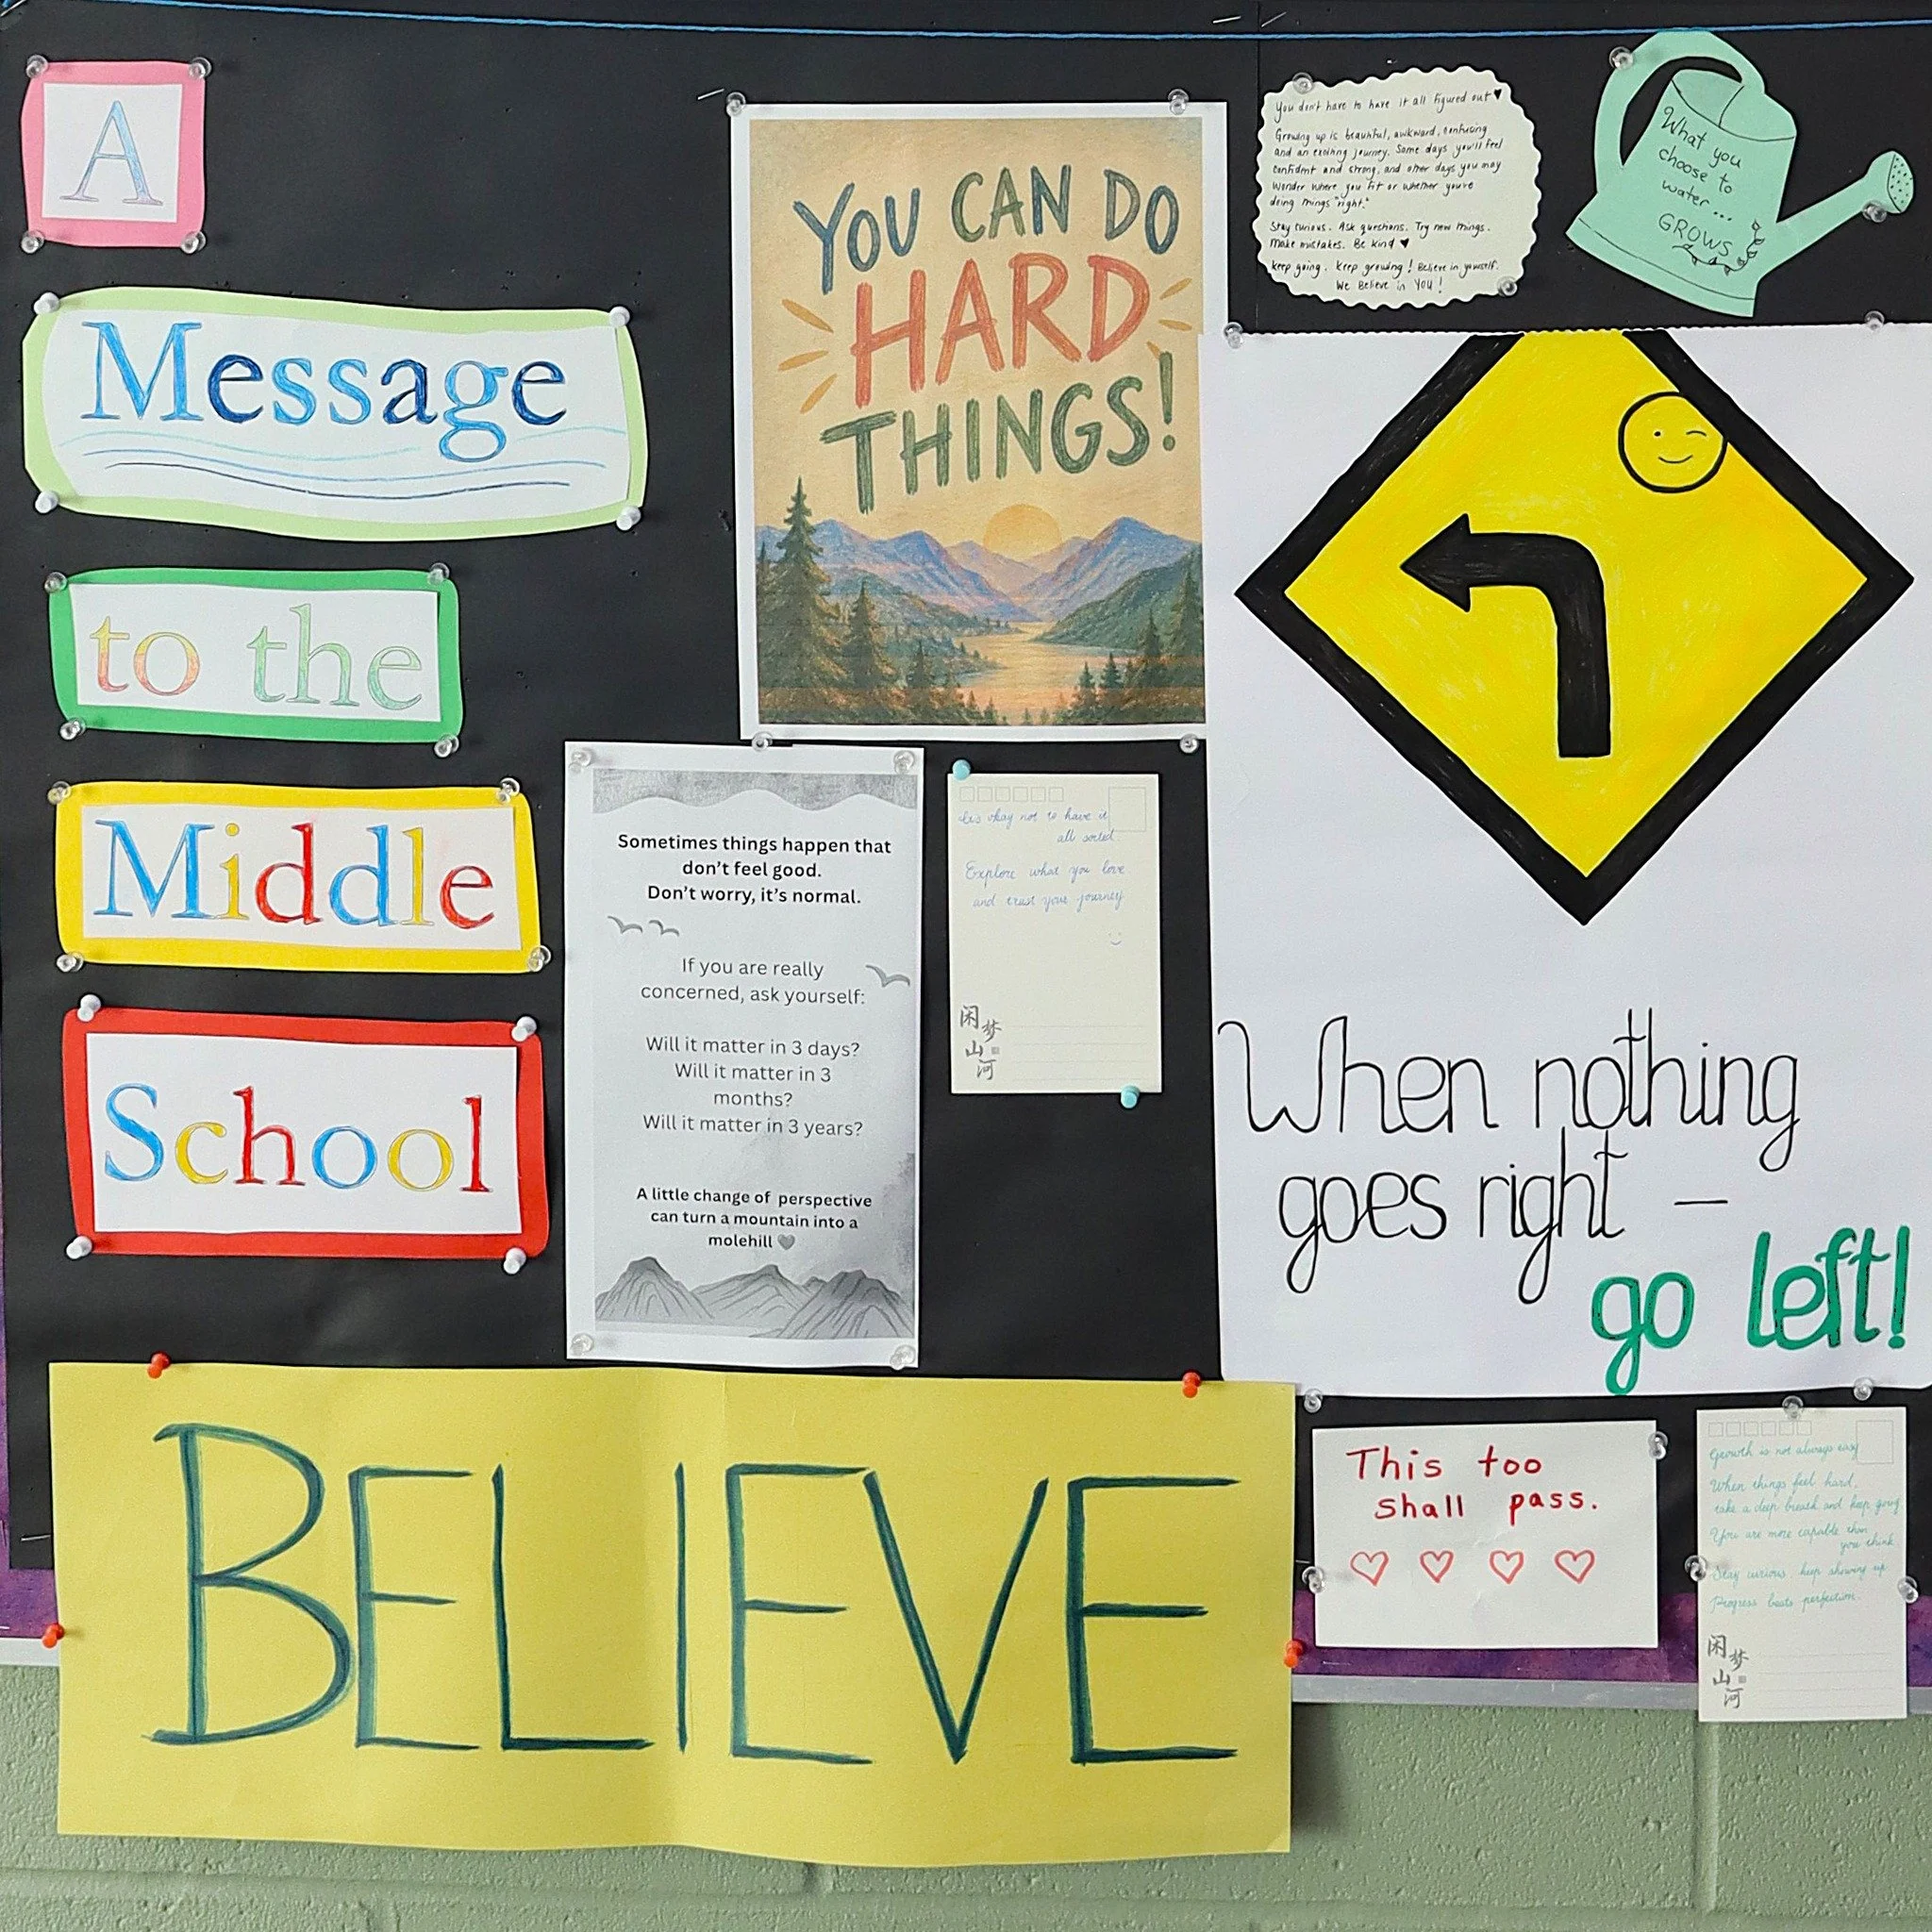 A
Message
to the
Middle
School
YOU CAN DO
HARD
THINGS!
You don't have to have it all figured out ♥
Growing up is beautiful, awkward, confusing
and an exciting journey. Some days you'll feel
confident and strong, and other days you may
wonder where you fit or whether you're
doing things "right."
Stay curious. Ask questions. Try new things.
Make mistakes. Be kind ♥
Keep going. Keep growing! Believe in yourself.
We Believe in YOU!
What you
choose to
water...
GROWS
Sometimes things happen that
don't feel good.
Don't worry, it's normal.
If you are really
concerned, ask yourself:
Will it matter in 3 days?
Will it matter in 3
months?
Will it matter in 3 years?
A little change of perspective
can turn a mountain into a
molehill
It's okay not to have it
all sorted.
Explore what you love
and trust your journey
闲梦
山河
When nothing
goes right –
go left!
BELIEVE
This too
shall pass.
Growth is not always easy
When things feel hard,
take a deep breath and keep going.
You are more capable than
you think
Stay curious, keep showing up.
Progress beats perfection.
闲梦
山河